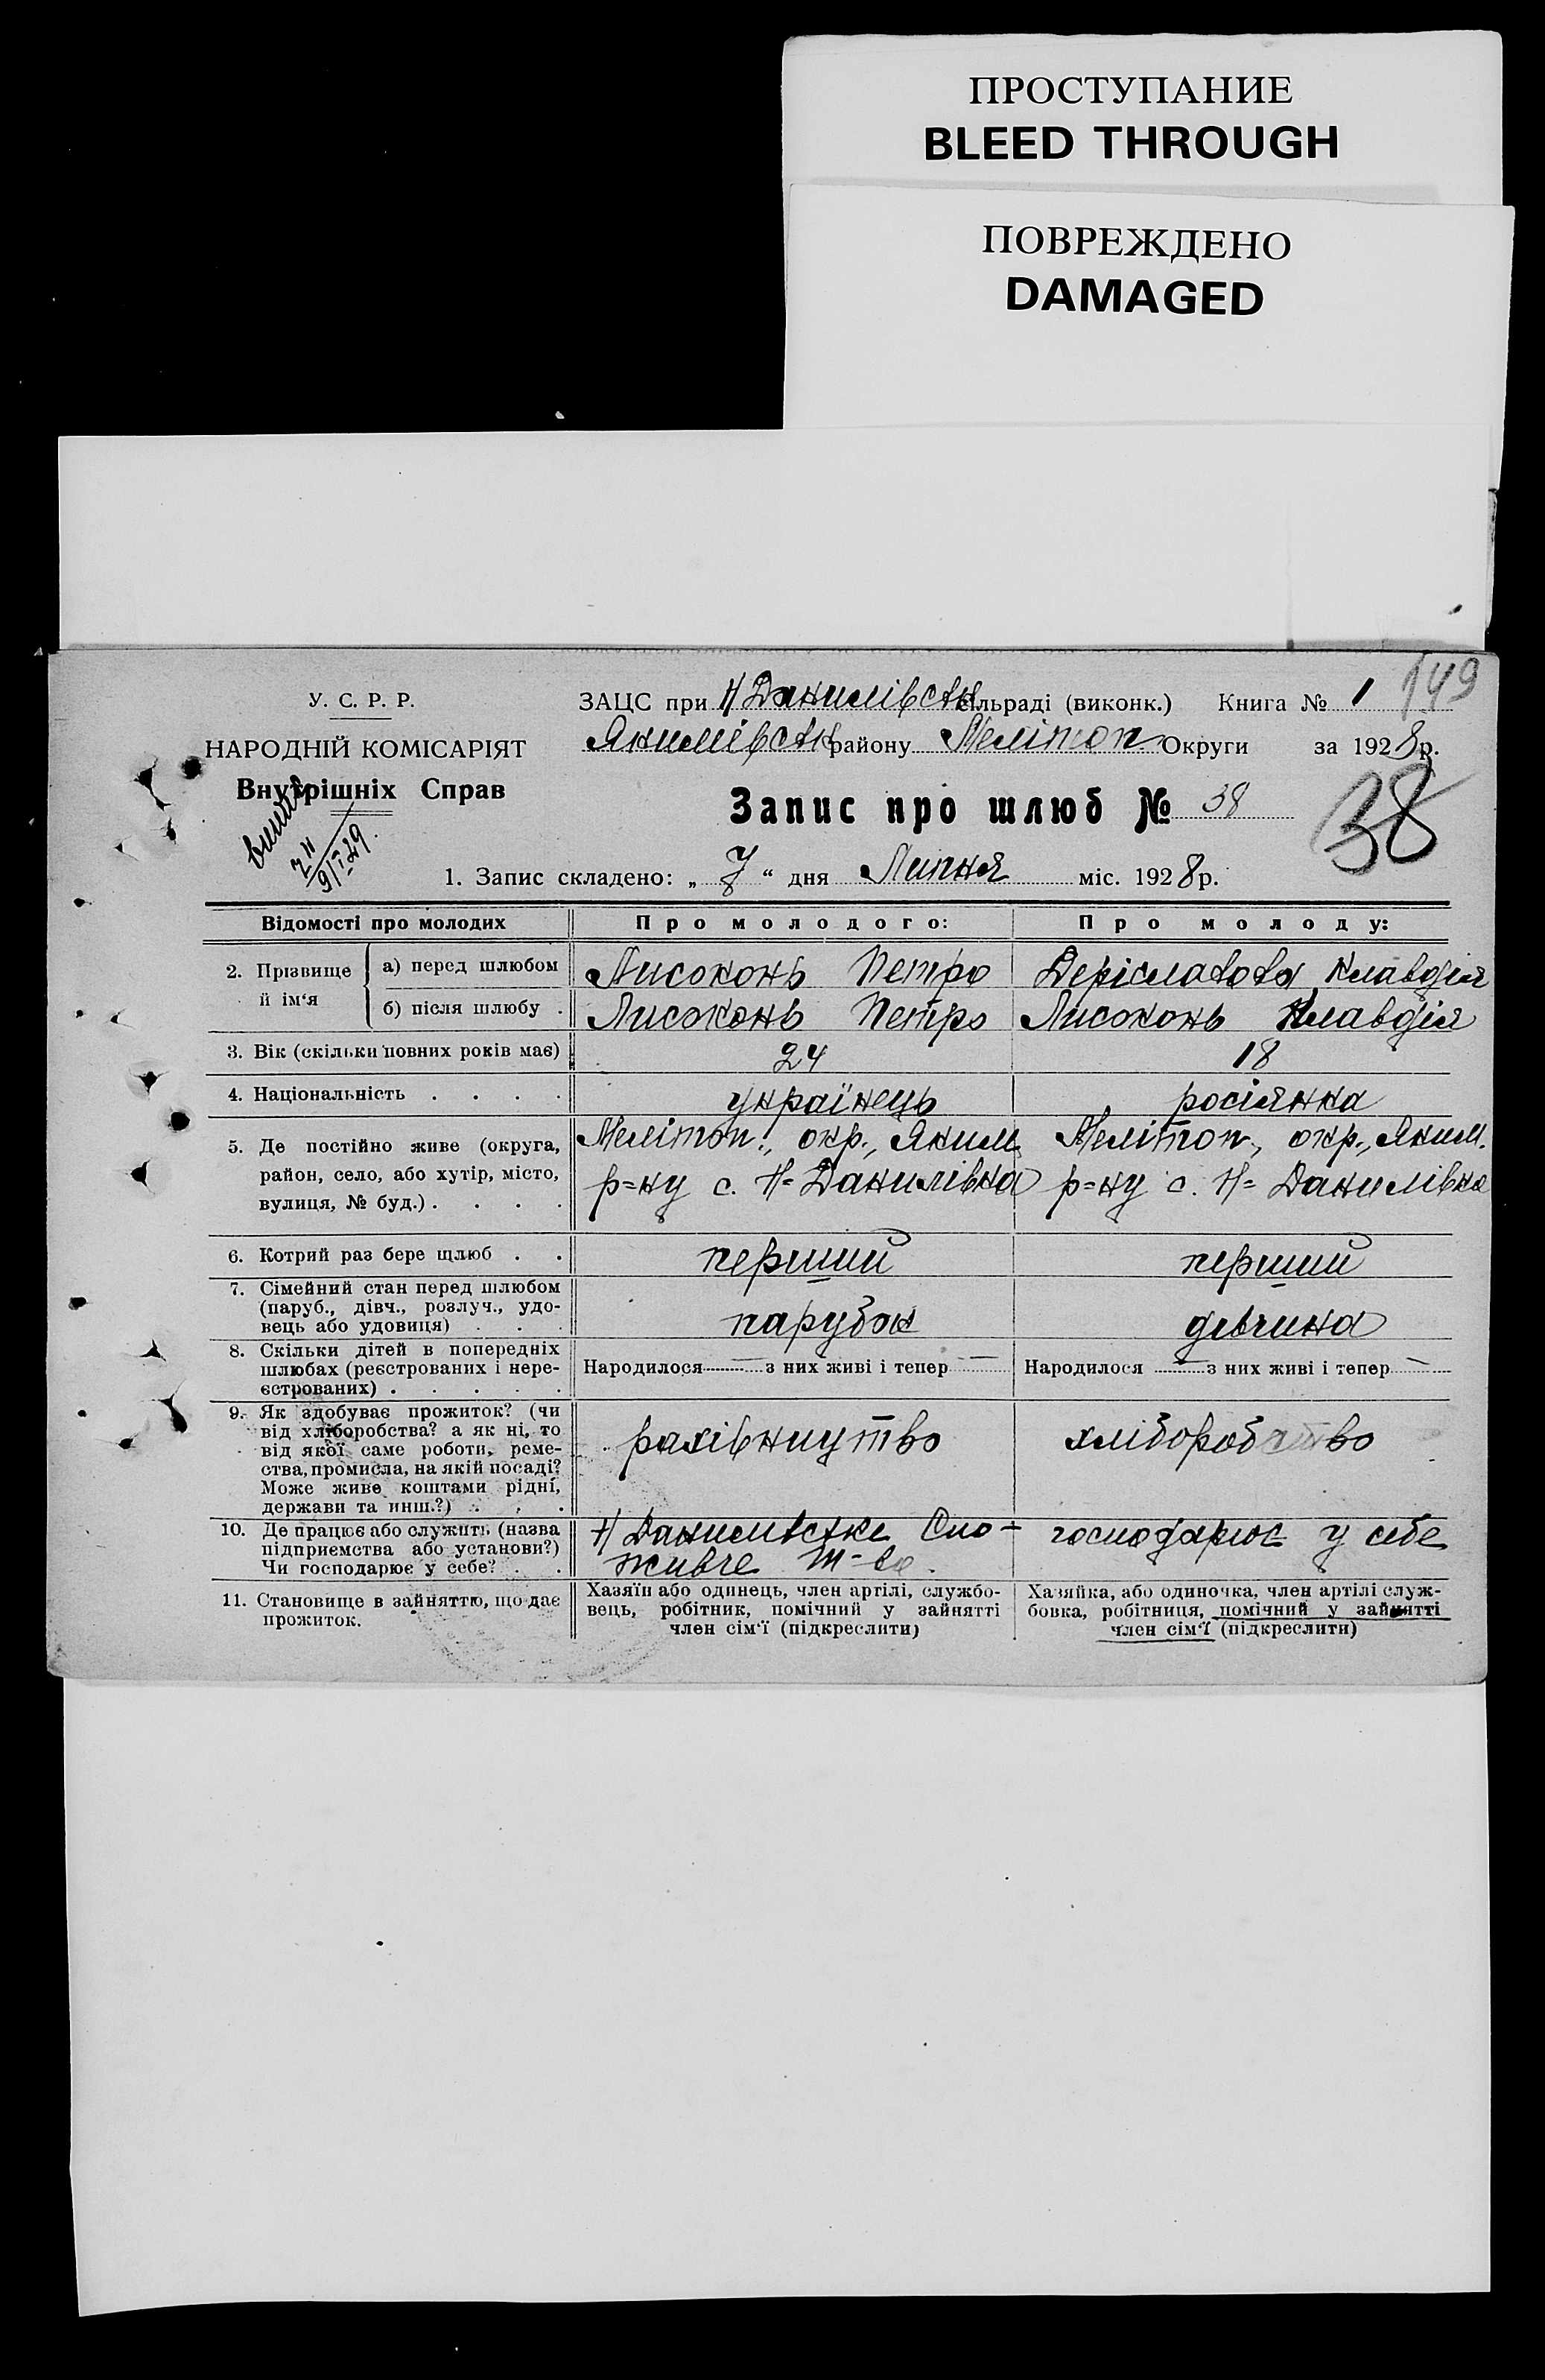 ПРОСТУПАНИЕ
BLEED THROUGH
ПОВРЕЖДЕНО
DAMAGED
149
У. С. Р. Р.
НАРОДНІЙ КОМІСАРІЯТ
Внутрішніх Справ
24
9/I 29.
ЗАЦС при Н Данилівськ сільраді (виконк.) Книга № 1
Якимівськ району Мелітоп Округи за 1928 р.
Запис про шлюб № 38
38
1. Запис складено: „ 7 “ дня Липня міс. 1928 р.
Відомості про молодих
Про молодого:
Про молоду:
2. Прізвище й ім‘я
а) перед шлюбом
Лисоконь Петро
Деріславова Клавдія
б) після шлюбу .
Лисоконь Петро
Лисоконь Клавдія
3. Вік (скільки повних років має)
24
18
4. Національність . . . .
українець
росіянка
5. Де постійно живе (округа,
район, село, або хутір, місто,
вулиця, № буд.) . . . .
Мелітоп., окр., Яким.
р=ну с. Н= Данилівка
Мелітоп, окр., Яким.
р=ну с. Н= Данилівка
6. Котрий раз бере шлюб . .
перший
перший
7. Сімейний стан перед шлюбом
(паруб., дівч., розлуч., удо-
вець або удовиця) . . .
парубок
дівчина
8. Скільки дітей в попередніх
шлюбах (реєстрованих і нере-
єстрованих) . . . . .
Народилося — з них живі і тепер —
Народилося — з них живі і тепер —
9. Як здобуває прожиток? (чи
від хліборобства? а як ні, то
від якої саме роботи, реме-
ства, промисла, на якій посаді?
Може живе коштами рідні,
держави та инш.?) . . .
рахівництво
хліборобство
10. Де працює або служить (назва
підприємства або установи?)
Чи господарює у себе? . .
Н Данилівське Спо-
живче т-во.
господарює у себе
11. Становище в зайняттю, що дає
прожиток.
Хазяїн або одинець, член артілі, службо-
вець, робітник, помічний у зайнятті
член сім‘ї (підкреслити)
Хазяйка, або одиночка, член артілі служ-
бовка, робітниця, помічний у зайнятті
член сім‘ї (підкреслити)